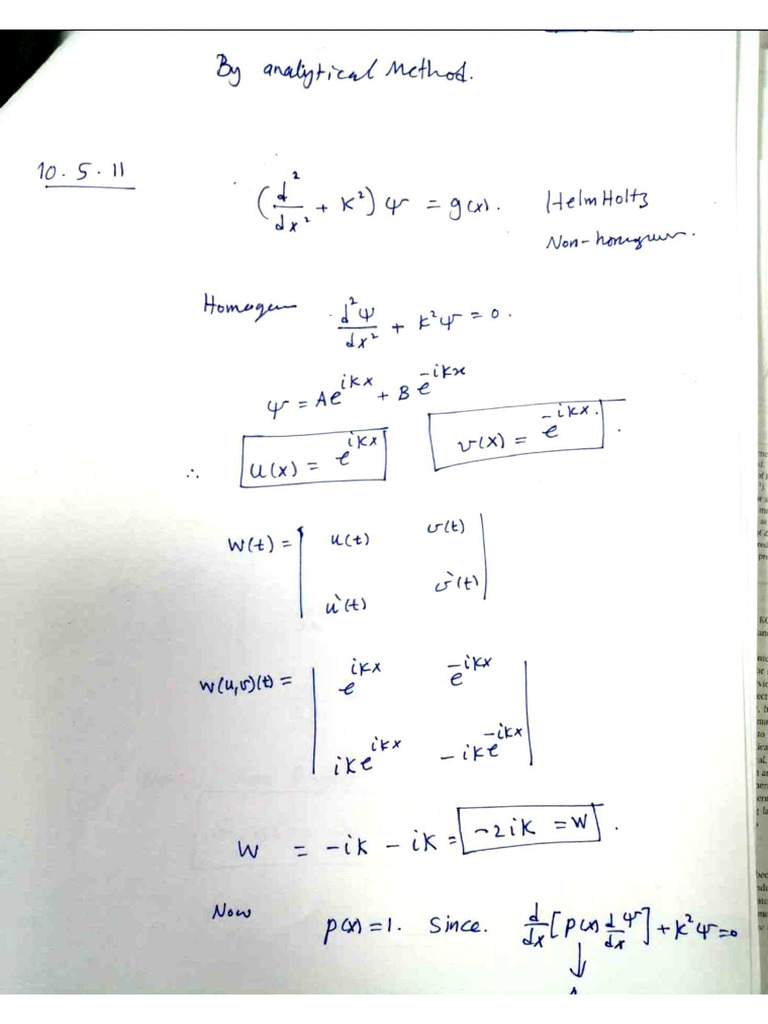 By analytical Method.
10.5.11
(d²/dx² + K²) ψ = g(x). HelmHoltz
Non-
d²ψ/dx² + K²ψ = 0.
ψ = Ae^{iKx} + Be^{-iKx}
∴ u(x) = e^{iKx} v(x) = e^{-iKx}.
W(t) = | u(t) v(t) |
| u̇(t) v̇(t) |
W(u,v)(t) = | e^{iKx} e^{-iKx} |
| iKe^{iKx} -iKe^{-iKx} |
W = -iK - iK = -2iK = W.
Now p(x) = 1. Since. d/dx [p(x) dψ/dx] + K²ψ = 0
↓